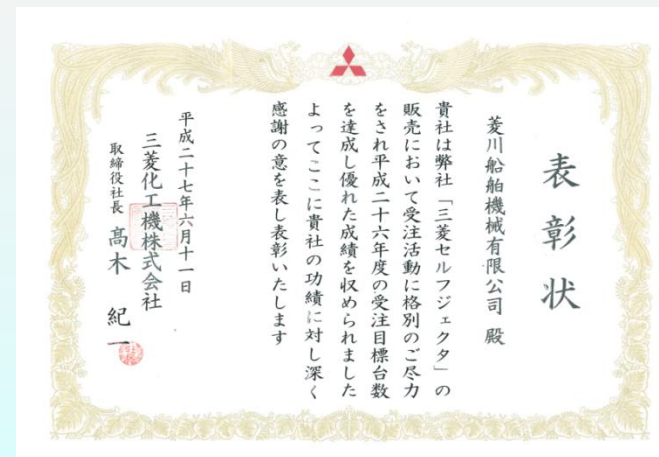 表彰状
菱川船舶機械有限公司 殿
貴社は弊社「三菱セルフジェクタ」の
販売において受注活動に格別のご尽力
をされ平成二十六年度の受注目標台数
を達成し優れた成績を収められました
よってここに貴社の功績に対し深く
感謝の意を表し表彰いたします
平成二十七年六月十一日
三菱化工機株式会社
取締役社長 髙木 紀一